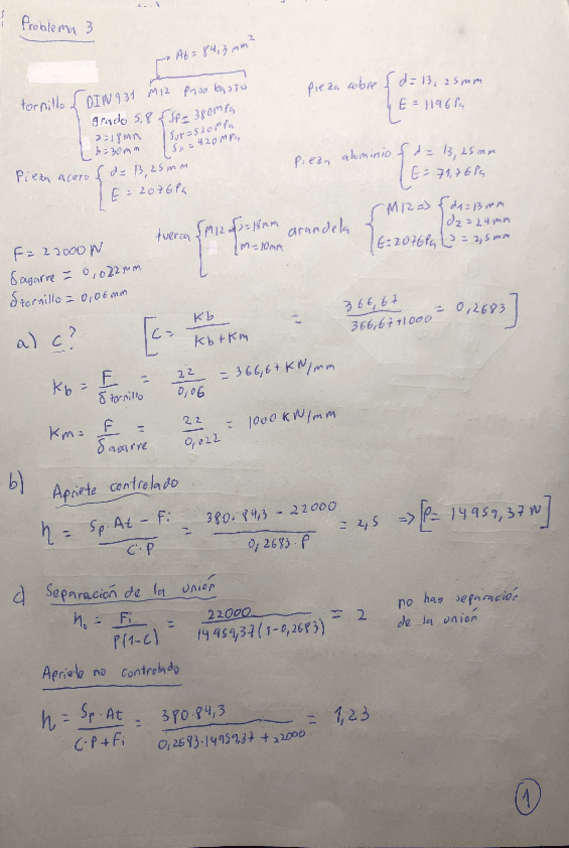 Problema 3
At = 84,3 mm²
tornillo { DIN 931 M12 paso basto
grado 5.8 { Sp = 380MPa
s = 18mm Sut = 520MPa
b = 30mm Sy = 420MPa
pieza cobre { d = 13,25mm
E = 119GPa
Pieza acero { d = 13,25mm
E = 207GPa
pieza aluminio { d = 13,25mm
E = 71,7GPa
tuerca { M12 { s = 18mm
m = 10mm
arandela { M12 => { d1 = 13mm
E = 207GPa d2 = 24mm
s = 2,5mm
F = 22000 N
δagarre = 0,022mm
δtornillo = 0,06mm
a) c? [ C = Kb / Kb + Km = 366,67 / 366,67 + 1000 = 0,2683 ]
Kb = F / δtornillo = 22 / 0,06 = 366,67 KN/mm
Km = F / δagarre = 22 / 0,022 = 1000 KN/mm
b) Apriete controlado
n = Sp. At - Fi / C. P = 380. 84,3 - 22000 / 0,2683. P = 2,5 => [P = 14959,37 N]
c) Separación de la unión
n₀ = Fi / P(1-C) = 22000 / 14959,37 (1-0,2683) = 2 no hay separación
de la unión
Apriete no controlado
n = Sp. At / C. P + Fi = 380. 84,3 / 0,2683. 14959,37 + 22000 = 1,23
1